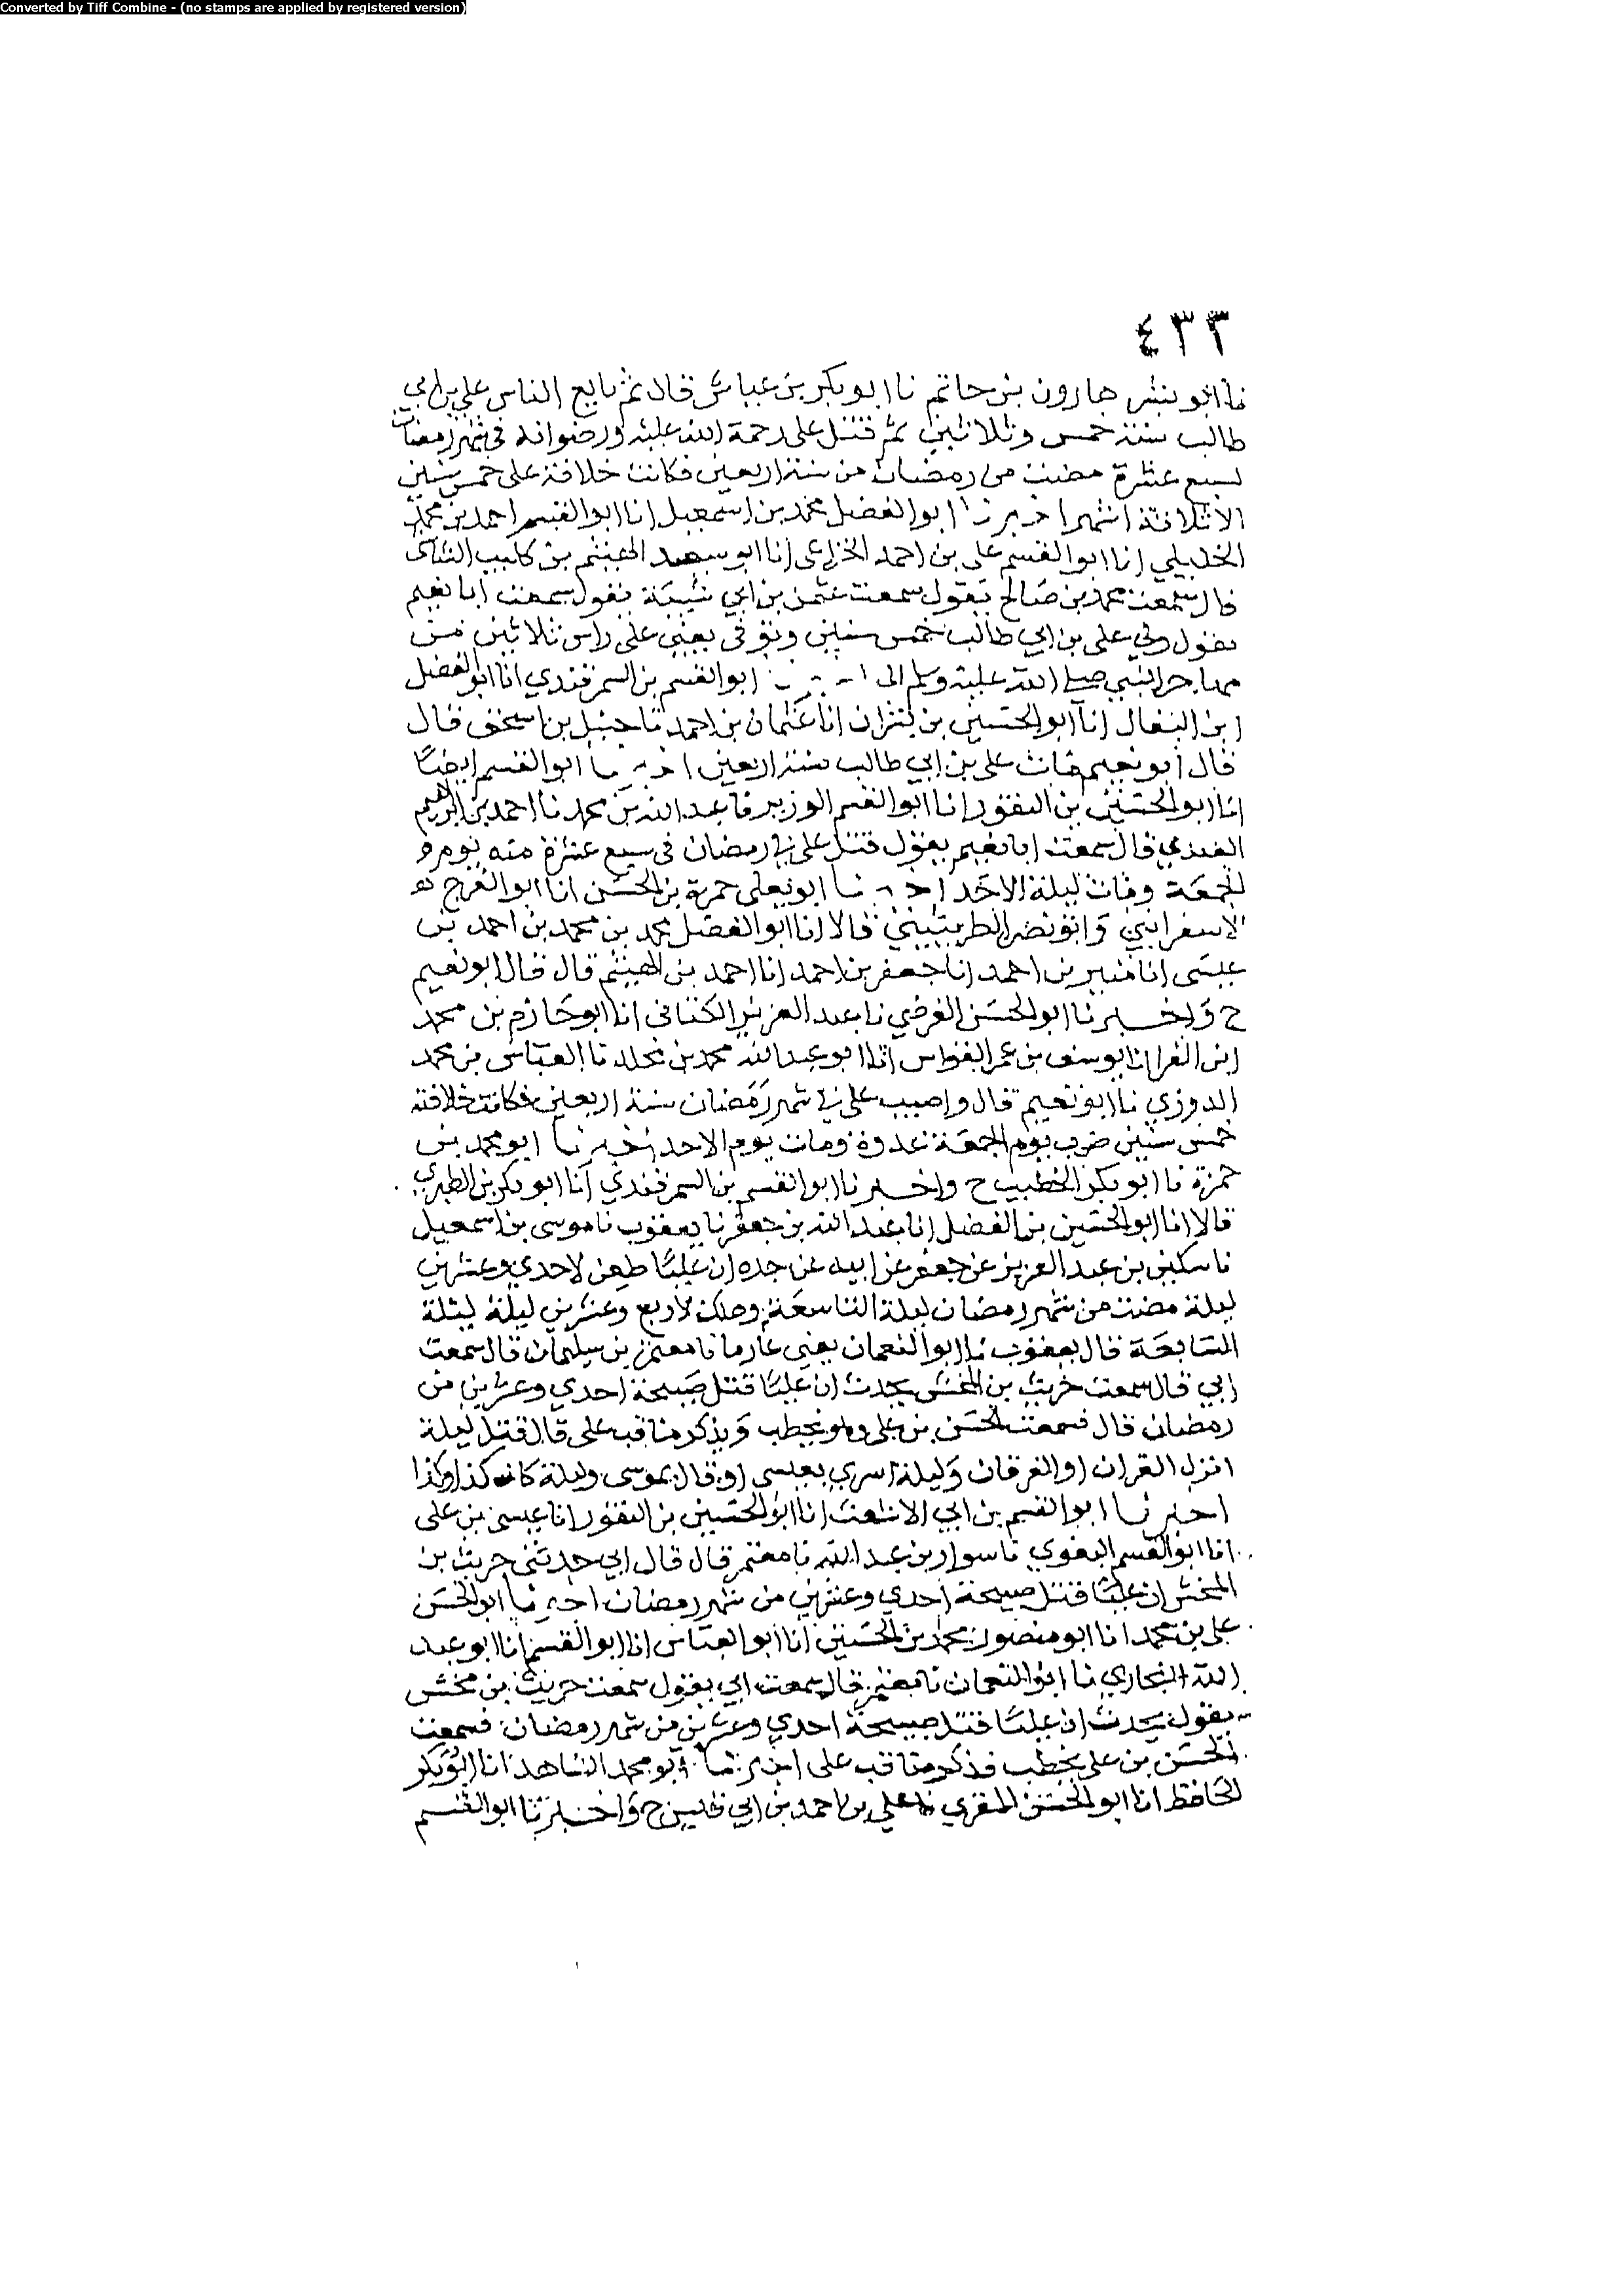 Converted by Tiff Combine - (no stamps are applied by registered version)
٤٣٣
نا ابو بشر هارون بن حاتم نا ابو بكر بن عياش قال ثم بايع الناس علي بن ابي
طالب سنة خمس وثلاثين ثم قتل على رحمة الله عليه ورضوانه في شهر رمضان
لسبع عشرة مضت من رمضان من سنة اربعين فكانت خلافة على خمس سنين
الا ثلاثة اشهر اخبرنا ابو الفضل محمد بن اسمعيل انا ابو القسم احمد بن محمد
الخليلي انا ابو القسم على بن احمد الخزاعى انا ابو سعيد الهيثم بن كليب الشاشى
قال سمعت محمد بن صالح يقول سمعت عثمن بن ابي شيبة يقول سمعت ابا نعيم
يقول ولي على بن ابي طالب خمس سنين وتوفى يعني على راس ثلاثين من
مهاجر النبي صلى الله عليه وسلم ابو القسم بن السمرقندي انا ابو الفضل
ابن البقال انا ابو الحسين بن بشران انا عثمان بن احمد نا حنبل بن اسحق قال
قال ابو نعيم مات على بن ابي طالب سنة اربعين اخبرنا ابو القسم ايضا
انا ابو الحسين بن النقور انا ابو القسم الوزير نا عبد الله بن محمد نا احمد بن ابراهيم
العبدي قال سمعت ابا نعيم يقول قتل على في رمضان في سبع عشرة منه يوم
الجمعة ومات ليلة الاحد اخبرنا ابو يعلى حمزة بن الحسن انا ابو الفرج
الاسفرايني وابو نصر الطريثيثي قالا انا ابو الفضل محمد بن محمد بن احمد بن
عيسى انا منير بن احمد انا جعفر بن احمد انا احمد بن الهيثم قال قال ابو نعيم
ح واخبرنا ابو الحسن الفرضي نا عبد العزيز الكتاني انا ابو خازم بن محمد
ابن الفرا انا يوسف بن عمر القواس انا ابو عبد الله محمد بن مخلد نا العباس بن محمد
الدوري نا ابو نعيم قال واصيب على في شهر رمضان سنة اربعين فكانت خلافته
خمس سنين ضرب يوم الجمعة غدوة ومات يوم الاحد اخبرنا ابو محمد بن
حمزة نا ابو بكر الخطيب ح واخبرنا ابو القسم بن السمرقندي انا ابو بكر بن الطبري
قالا انا ابو الحسين بن الفضل انا عبد الله بن جعفر نا يعقوب نا موسى بن اسمعيل
نا سكين بن عبد العزيز عن جعفر عن ابيه عن جده ان عليا طعن لاحدي وعشرين
ليلة مضت من شهر رمضان ليلة التاسعة وهلك لاربع وعشرين ليلة ليلة
السابعة قال يعقوب نا ابو النعمان يعني عارما نا معتمر بن سليمان قال سمعت
ابي قال سمعت حريث بن المخش يحدث ان عليا قتل صبيحة احدي وعشرين من
رمضان قال فسمعت الحسن بن على وهو يخطب ويذكر مناقب على قال قتل ليلة
انزل القران او الفرقان وليلة اسري بعيسى او قال بموسى وليلة كان كذا وكذا
اخبرنا ابو القسم بن ابي الاشعث انا ابو الحسين بن النقور انا عيسى بن على
انا ابو القسم البغوي نا سوار بن عبد الله نا معتمر قال قال ابي حدثنى حريث بن
المخش ان عليا قتل صبيحة احدي وعشرين من شهر رمضان اخبرنا ابو الحسن
على بن محمد انا ابو منصور محمد بن الحسين انا ابو العباس انا ابو القسم انا ابو عبد
الله البخاري نا ابو النعمان نا معتمر قال سمعت ابي يقول سمعت حريث بن مخش
يقول يحدث ان عليا قتل صبيحة احدي وعشرين من شهر رمضان فسمعت
الحسن بن على يخطب فذكر مناقب على اخبرنا ابو محمد الشاهد انا ابو بكر
الحافظ انا ابو الحسن المقري نا علي بن احمد بن ابي قيس ح واخبرنا ابو القسم